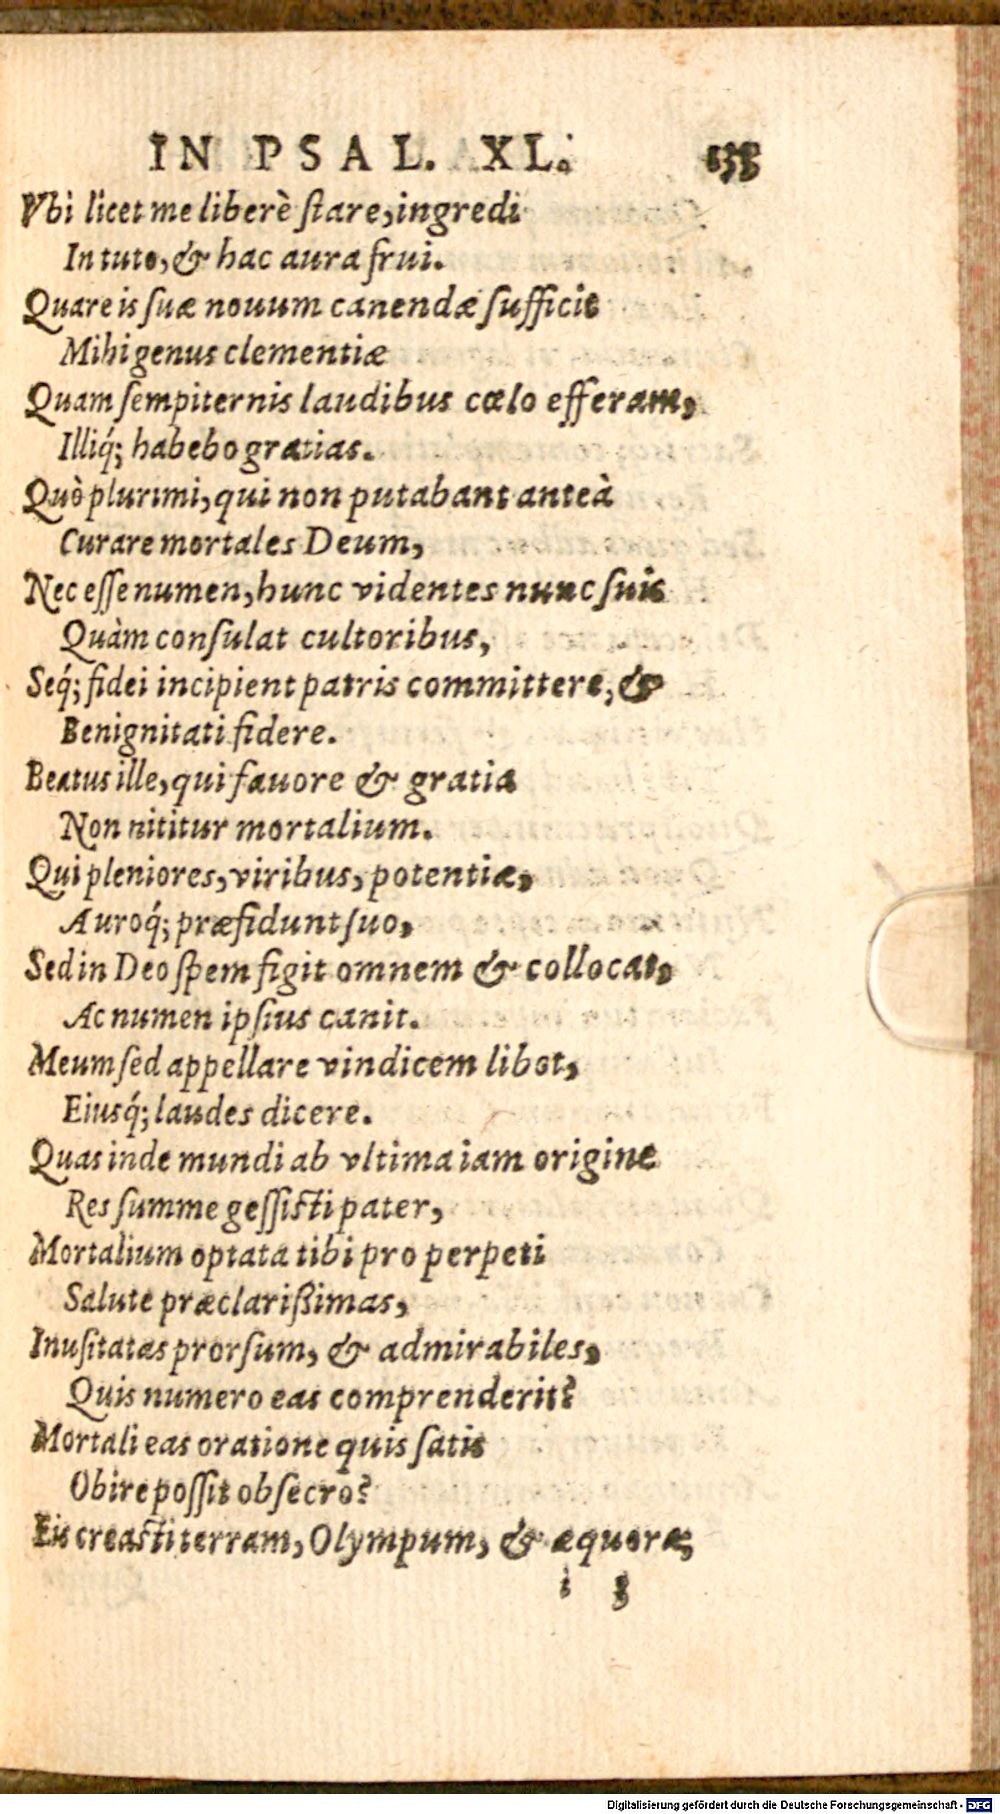 IN PSAL. XL.
Vbi licet me liberè ſtare, ingredi
In tuto, & hac aura frui.
Quare is ſuæ nouum canendæ ſufficit
Mihi genus clementiæ
Quam ſempiternis laudibus cœlo efferam,
Illiq́; habebo gratias.
Quò plurimi, qui non putabant anteà
Curare mortales Deum,
Nec eſſe numen, hunc videntes nunc ſuis
Quàm conſulat cultoribus,
Seq́; fidei incipient patris committere, &
Benignitati fidere.
Beatus ille, qui fauore & gratia
Non nititur mortalium.
Qui pleniores, viribus, potentiæ,
Auroq́; præfidunt ſuo,
Sed in Deo ſpem figit omnem & collocat,
Ac numen ipſius canit.
Meum ſed appellare vindicem libet,
Eiusq́; laudes dicere.
Quas inde mundi ab vltima iam origine
Res ſumme geſſiſti pater,
Mortalium optata tibi pro perpeti
Salute præclarißimas,
Inuſitatas prorſum, & admirabiles,
Quis numero eas comprenderit?
Mortali eas oratione quis ſatis
Obire poſſit obſecro?
Eis creaſti terram, Olympum, & æquora,
i 3
Digitalisierung gefördert durch die Deutsche Forschungsgemeinschaft - DFG